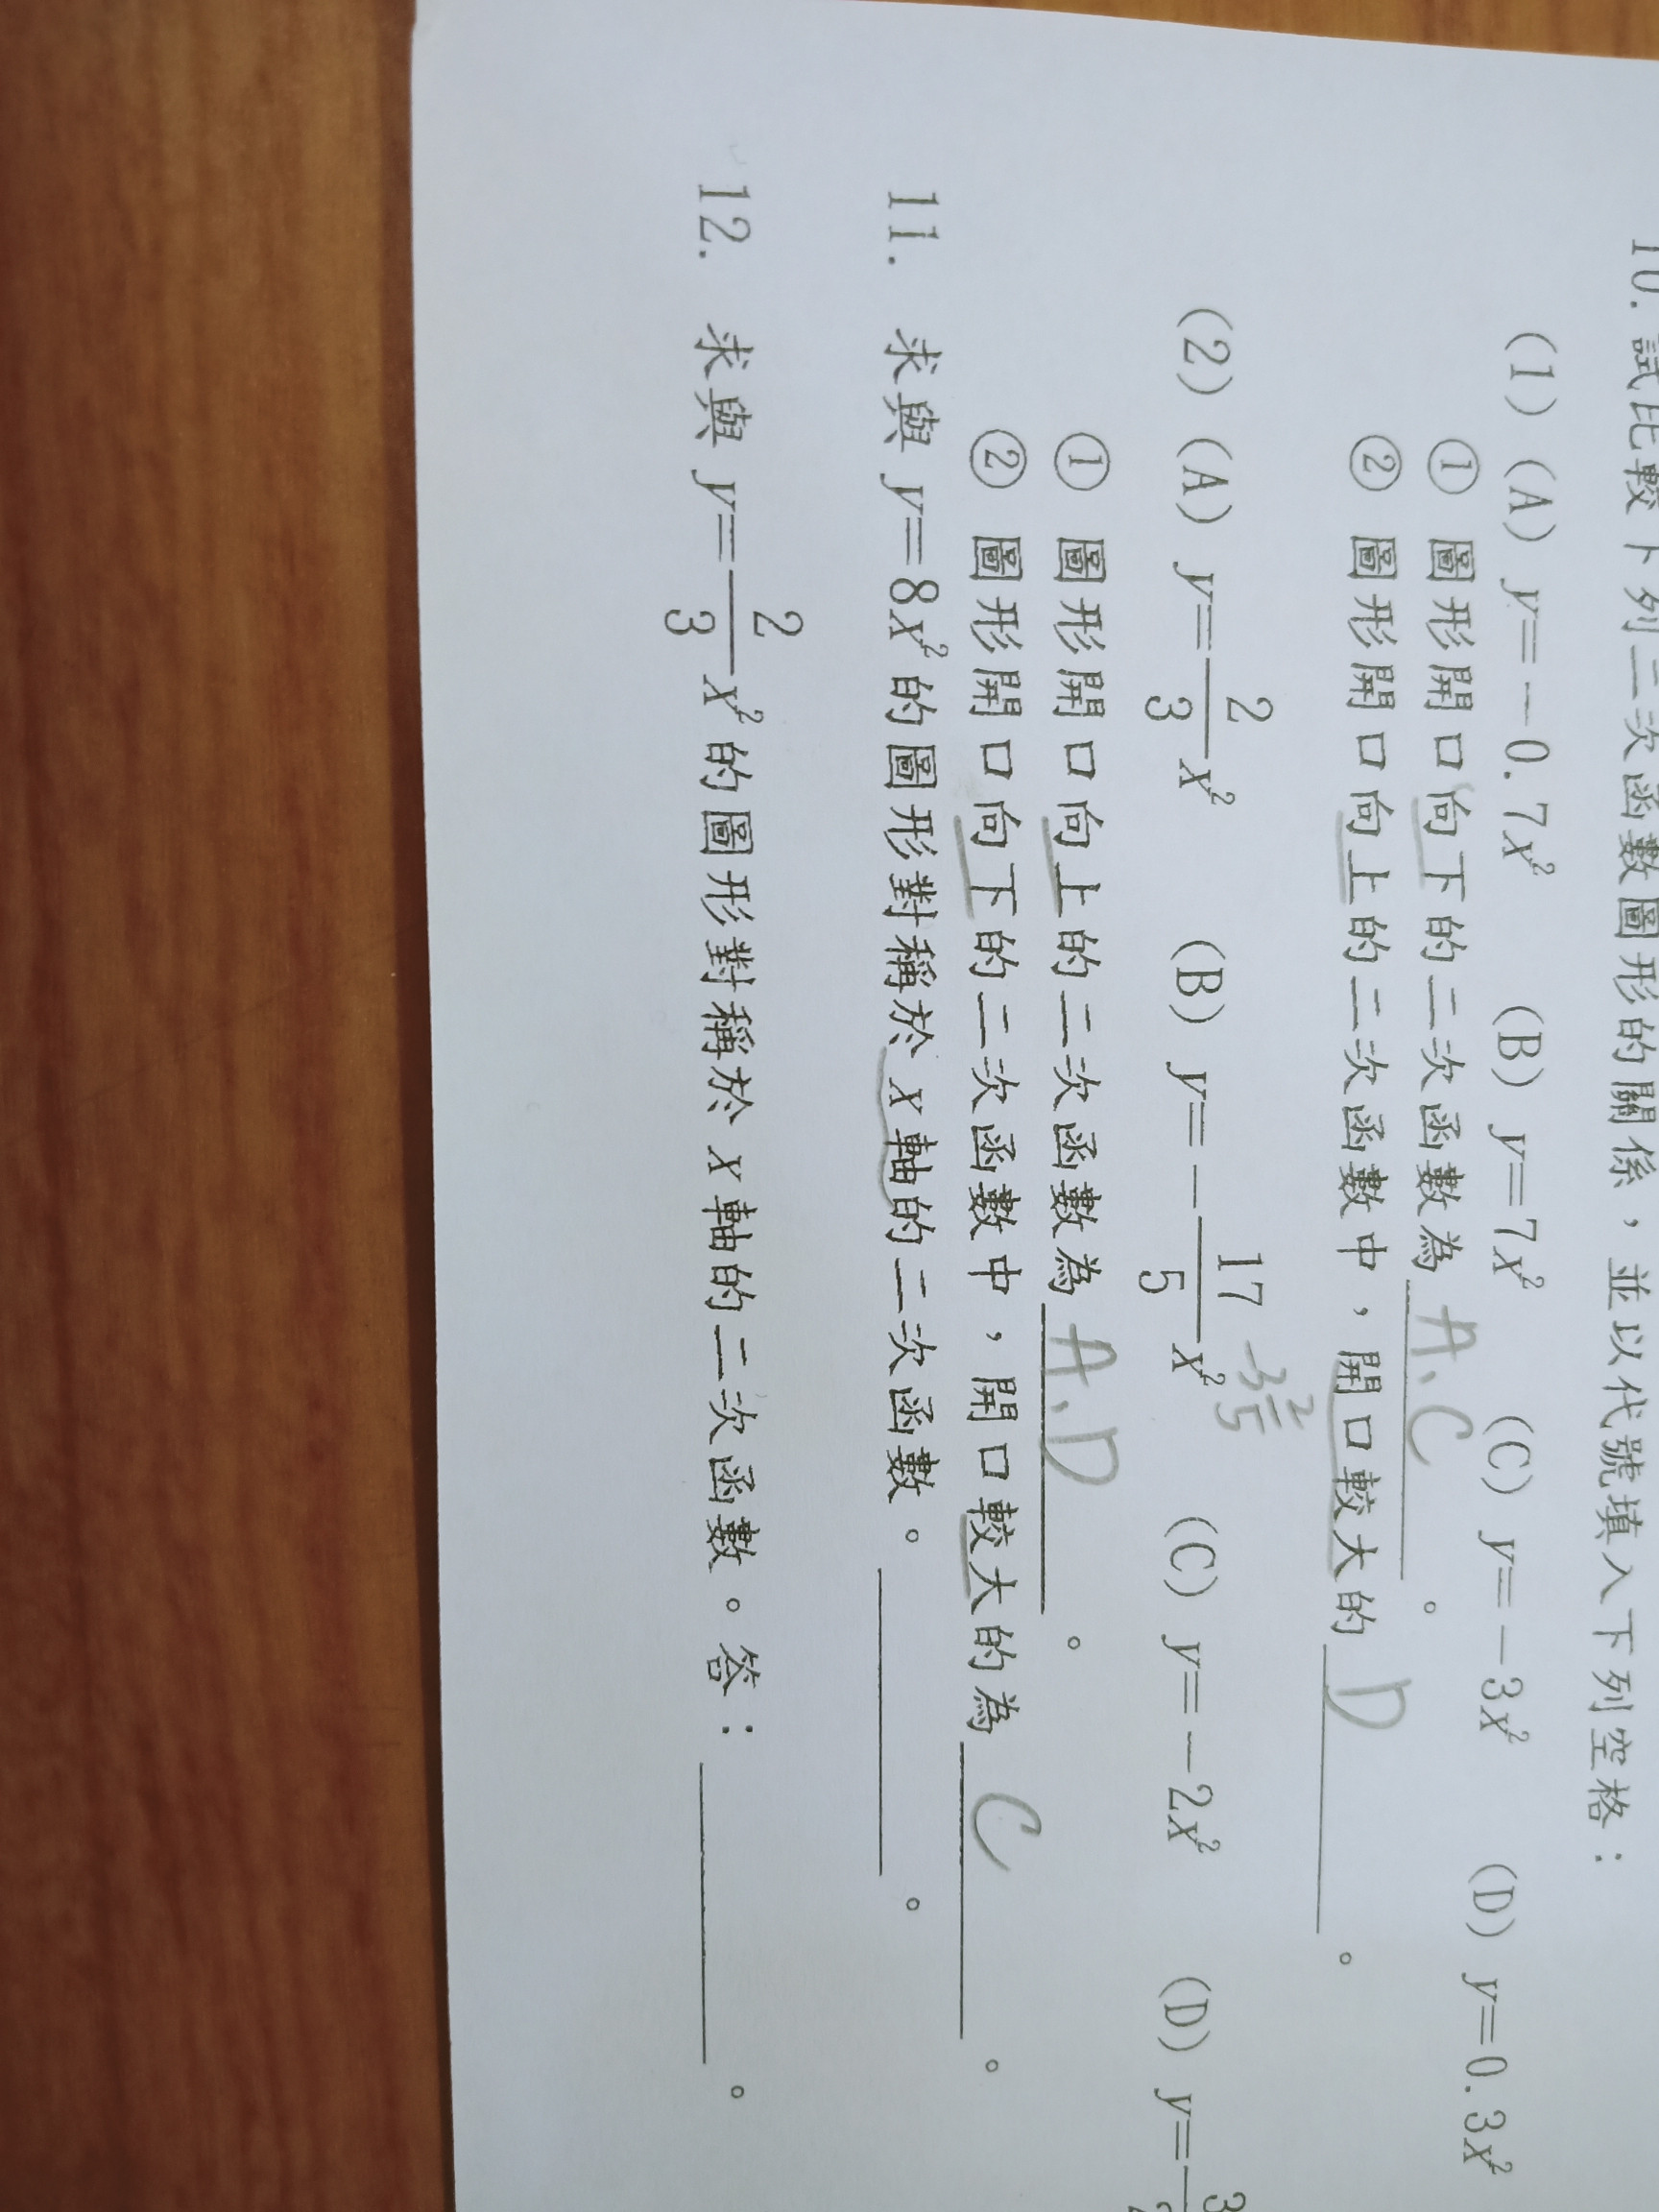 10. 試比較下列二次函數圖形的關係，並以代號填入下列空格：
(1) (A) y=－0.7x² (B) y=7x² (C) y=－3x² (D) y=0.3x²
① 圖形開口向下的二次函數為 A、C 。
② 圖形開口向上的二次函數中，開口較大的 D 。
(2) (A) y=2/3x² (B) y=－17/5x² -3 2/5 (C) y=－2x² (D) y=
① 圖形開口向上的二次函數為 A、D 。
② 圖形開口向下的二次函數中，開口較大的為 C 。
11. 求與 y=8x²的圖形對稱於 x 軸的二次函數。 。
12. 求與 y=2/3x²的圖形對稱於 x 軸的二次函數。答： 。